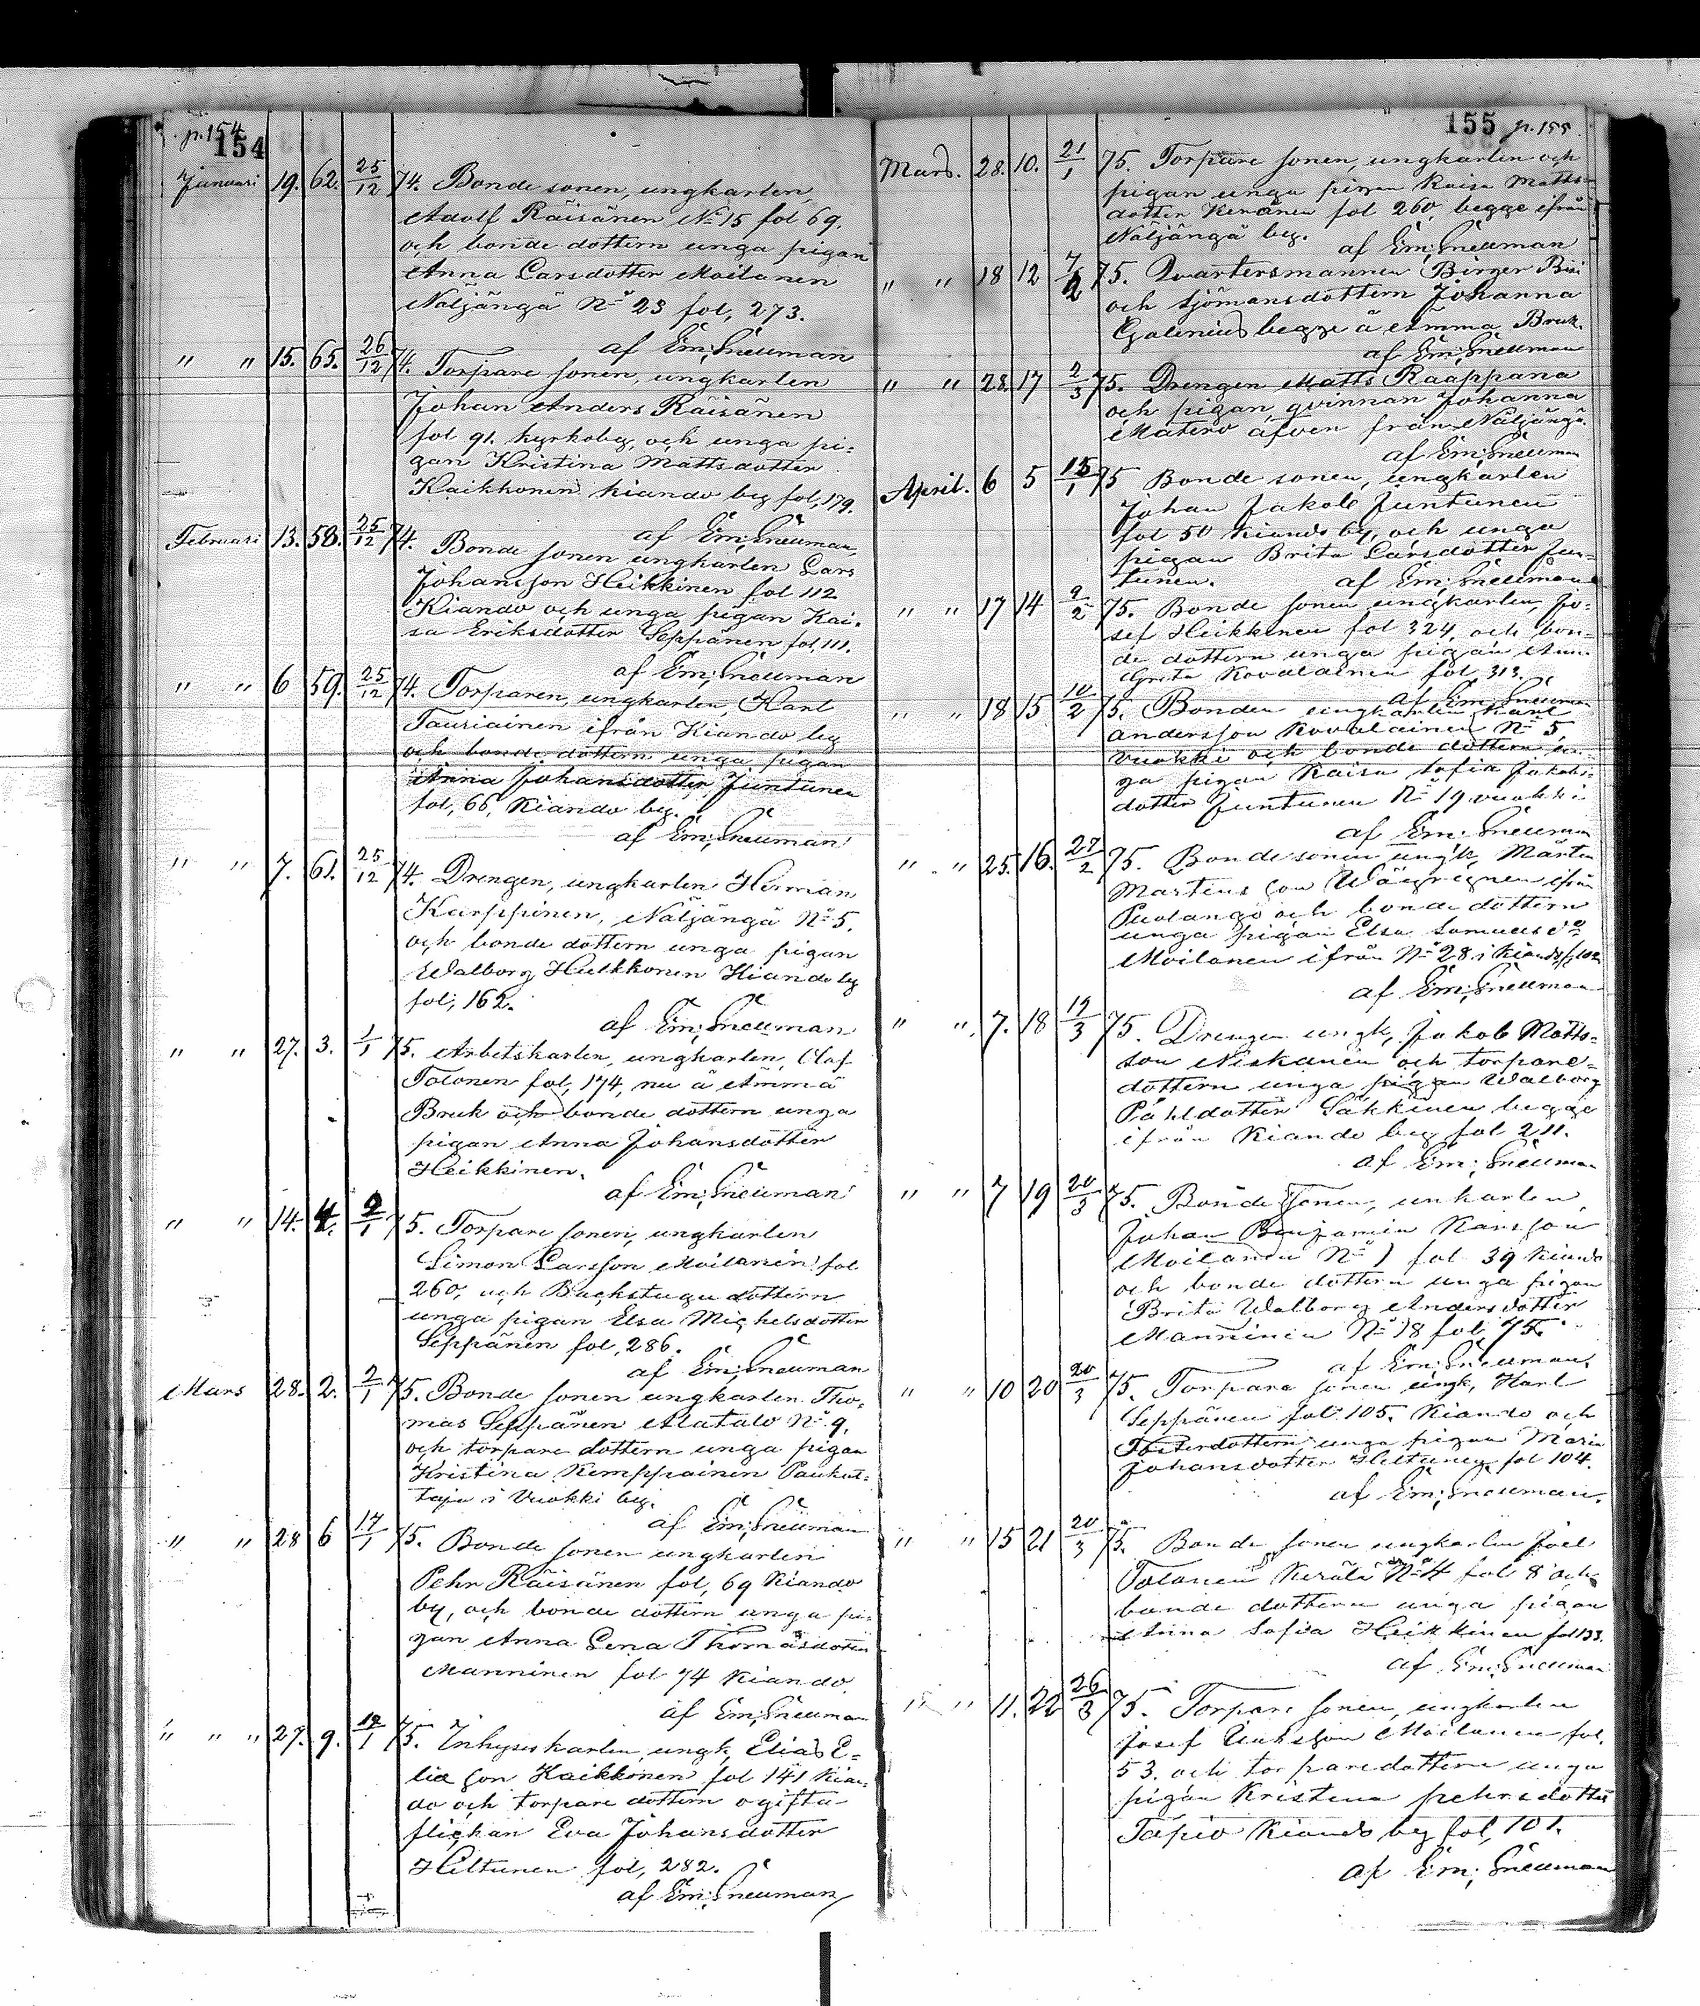 p. 154
154
Januari 19. 62. 25/12 74. Bonde sonen, ungkarlen,
Adolf Räisänen No 15 fol 69.
och bonde dottern unga pigan
Anna Larsdotter Moilanen
Näljängä No 23 fol, 273.
af Em; Sneuman
" " 15. 65. 26/12 74. Torpare sonen, ungkarlen
Johan Anders Räisänen
fol 91. kyrkoby, och unga pi-
gan Kristina Mattsdotter
Kaikkonen kiando by fol, 179.
af Em; Sneuman,
Februari 13. 58. 25/12 74. Bonde sonen ungkarlen Lars
Johansson Heikkinen fol 112
Kiando och unga pigan Kai-
sa Eriksdotter Seppänen fol, 111.
af Em; Sneuman
" " 6 59. 25/12 74. Torparen, ungkarlen, Karl
Tauriainen ifrån Kiando by
och bonde dottern unga pigan
Anna Johansdotter Juntunen
fol, 66, Kiando by.
af Em; Sneuman
" " 7. 61. 25/12 74. Drengen, ungkarlen Herman
Karppinen, Näljängä No 5.
och bonde dottern unga pigan
Walborg Hulkkonen Kiando by
fol, 162.
af Em; Sneuman
" " 27. 3. 1/1 75. Arbetskarlen, ungkarlen, Olof
Tolonen fol, 174, nu å Ämmä
Bruk och bonde dottern unga
pigan Anna Johansdotter
Heikkinen.
af Em; Sneuman
" " 14. 4. 2/1 75. Torpare sonen, ungkarlen
Simon Larsson Moilanen fol
260, och Backstugu dottern
unga pigan Elsa Michelsdotter
Seppänen fol, 286.
af Em; Sneuman
Mars 28. 2. 2/1 75. Bonde sonen ungkarlen Tho-
mas Seppänen Alatalo No 9.
och torpare dottern unga pigan
Kristina Kemppainen Pauhut-
taja i Vuokki by.
af Em; Sneuman
" " 28 6 17/1 75. Bonde sonen ungkarlen
Pehr Räisänen fol, 69 Kiando
by, och bonde dottern unga pi-
gan Anna Lena Thomasdotter
Manninen fol 74 Kiando.
af Em; Sneuman
" " " 27. 9. 18/1 75. Inhyses karlen, ungk, Elias E-
lia son Kaikkonen fol 141 Kian-
do och torpare dottern ogifta
flickan Eva Johansdotter
Heltunen fol, 282.
af Em; Sneuman
155 p. 155
Mars. 28. 10. 21/1 75. Torpare sonen, ungkarlen och
pigan unga pigan Kaisa Matts-
dotter Keränen fol 260, begge ifrån
Näljängä by.
af Em; Sneuman
" " 18 12 7/2 75. Qvartersmannen Birger
och sjömansdottern Johanna
Galenius begge å Ämmä Bruk.
af Em; Sneuman
" " 28. 17 2/3 75. Drengen Matts Raappana
och pigan, qvinnan Johanna
Matero äfven från Näljängä.
af Em; Sneuman
April. 6 5 15/1 75 Bonde sonen, ungkarlen
Johan Jakob Juntunen
fol 50 Kiando by, och unga
pigan Brita Larsdotter Jun-
tunen.
af Em; Sneuman
" " 17 14 9/2 75. Bonde sonen ungkarlen, Jo-
sef Heikkinen fol 324, och bon-
de dottern unga pigan Anna
Greta Kovalainen fol, 313.
af Em; Sneuman
" " 18 15 10/2 75. Bonden ungkarlen Karl
Andersson Kovalainen No 5,
Vuokki och bonde dottern un-
ga pigan Kaisa Sofia Jakobs-
dotter Juntunen No 19 Vuokki
af Em; Sneuman
" " 25. 16. 27/2 75. Bonde sonen ungk, Mårten
Martens son Wäyrynen ifrån
Puolango och bonde dottern
unga pigan Elsa Samuels dr
Moilanen ifrån No 28 i Kiando fol, 102
af Em; Sneuman
" " 7. 18 19/3 75. Drengen ungk, Jakob Matts-
son Niskanen och torpare-
dottern unga pigan Walborg
Påhldotter Säkkinen begge
ifrån Kiando by fol 211.
af Em; Sneuman
" " 7 19 20/3 75. Bonde sonen, unkarlen
Johan Benjamin Karlsson
Moilanen No 1 fol 39 Kiando
och bonde dottern unga pigan
Brita Walborg Andersdotter
Manninen No 18 fol, 75.
af Em; Sneuman.
" " 10 20 20/3 75. Torpare sonen ungk, Karl
Seppänen fol 105. Kiando och
Fosterdottern, unga pigan Maria
Johansdotter Heltunen fol 104.
af Em; Sneuman.
" " 15 21 20/3 75. Bonde sonen ungkarlen Joel
Tolonen Kerälä No 4 fol 8 och
bonde dottern unga pigan
Anna Sofia Heikkinen fol 133.
af Em; Sneuman
" " 11. 22 26/3 75. Torpare sonen, ungkarlen
Josef Eriksson Moilanen fol,
53. och torparedottern unga
pigan Kristina Pehrsdotter
Tapio Kiando by fol, 101.
af Em; Sneuman